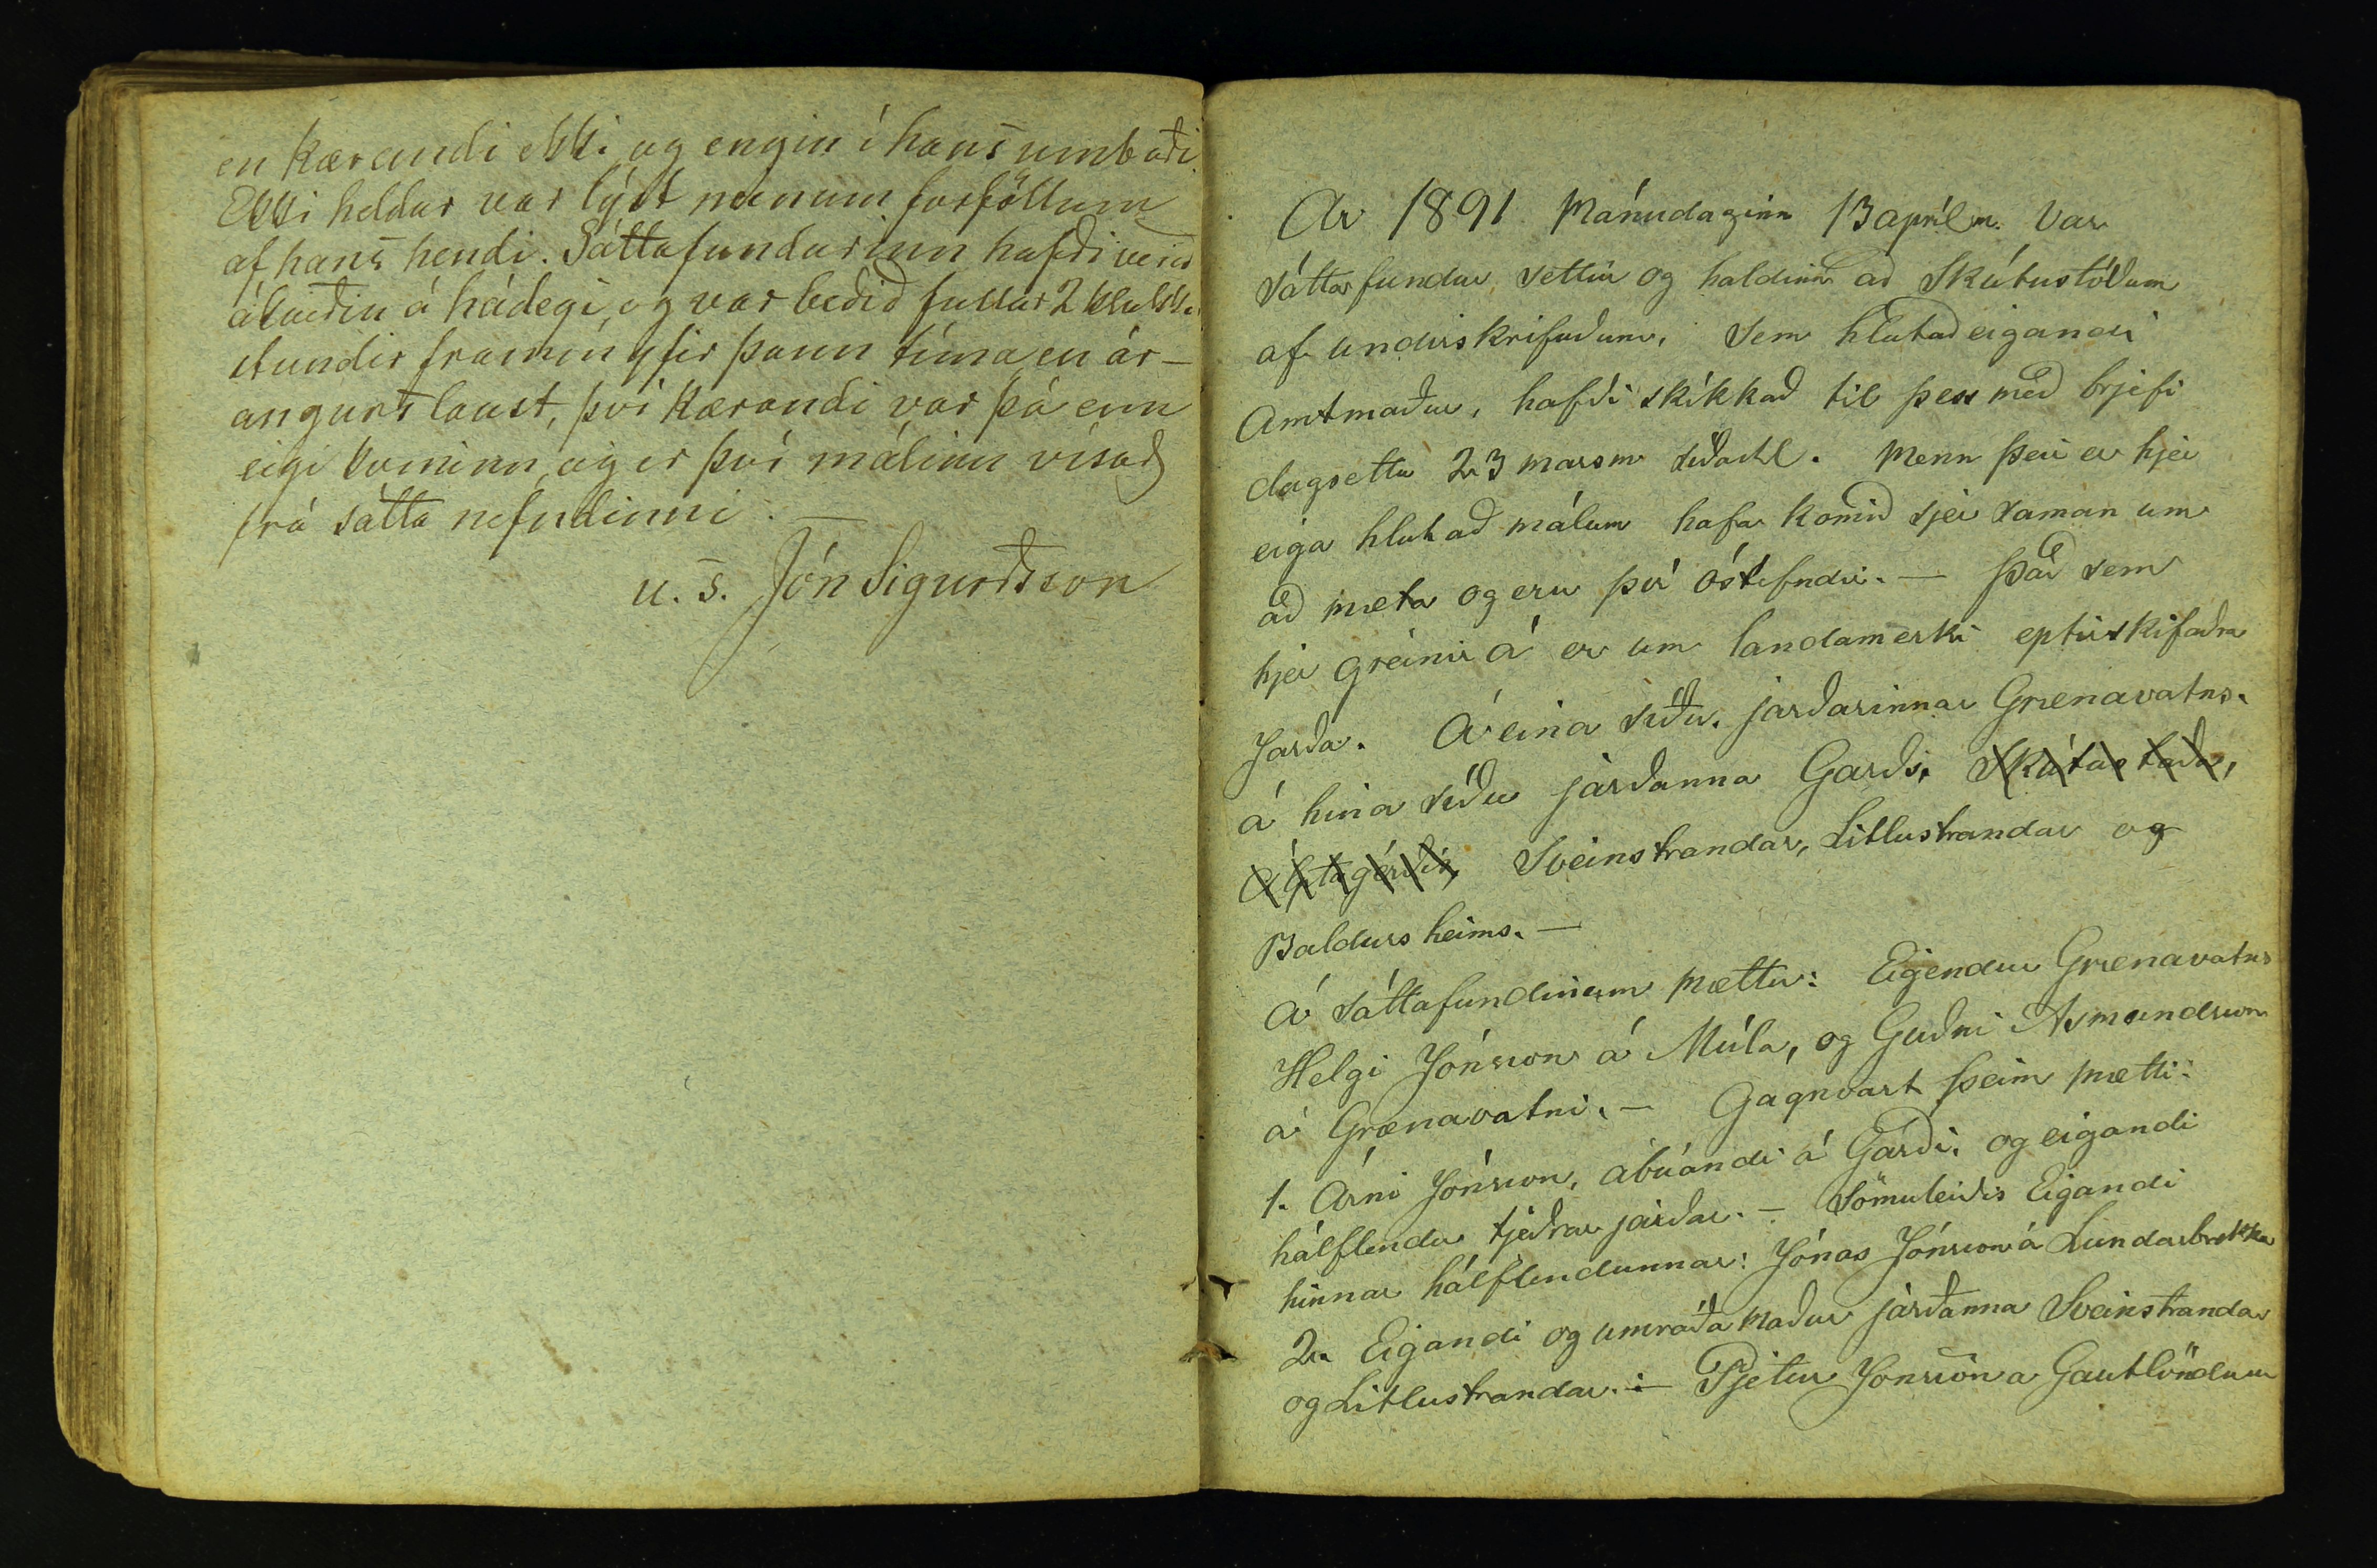 en kærandi ekki og engin í hans umboði.
Ekki heldur var lýst neinum forföllum
af hans hendi. Sáttafundurinn hafði verið
ákveðin á hádegi, og var beðið fullar 2 klukku
stundir framm yfir þann tíma en ár-
angurslaust, því kærandi var þá enn
eigi kominn, og er því málinu vísað
frá sátta nefndinni. —
u. s. Jón Sigurðsson
Ár 1891 Mánudaginn 13 apríl m. Var
sáttafundur settur og haldinn að Skútustöðum
af undirskrifuðum, sem hlutaðeigandi
Amtmaður, hafði skikkað til þess með brjefi
dagsettu 23 marsm síðastl. Menn þeir er hjer
eiga hlut að málum hafa komið sjer saman um
að mæta og eru því óstefndir. — Það sem
hjer greinir á er um landamerki eptirskrifaðra
Jarða. Á eina síðu. jarðarinnar Grænavatns.
á hina síðu jarðanna Garðs, Skútustaða,
Álptagerðis, Sveinstrandar, Litlustrandar og
Baldursheims. —
Á sáttafundinum mættu: Eigendur Grænavatns
Helgi Jónsson á Múla, og Guðni Asmundsson
á Grænavatni. — Gagnvart þeim mætti:
1. Árni Jónsson, ábúandi á Garði, og eigandi
hálflendu tjeðrar jarðar. — Sömuleiðis Eigandi
hinnar hálflendunnar: Jónas Jónsson á Lundarbrekku
2. Eigandi og umráðamaður jarðanna Sveinstrandar
og Litlustrandar. :— Pjetur Jónsson a Gautlöndum